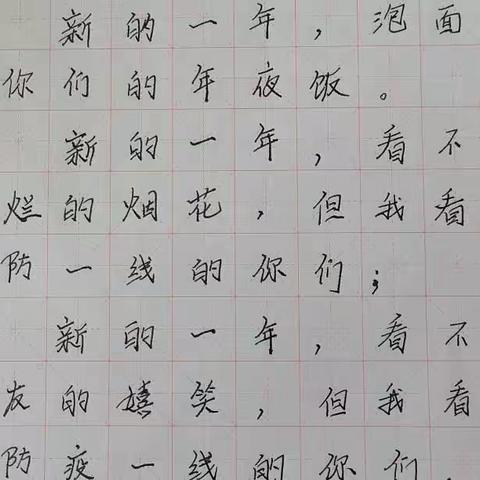 新的一年，泡面
你们的年夜饭。
新的一年，看不
烂的烟花，但我看
防一线的你们；
新的一年，看不
友的嬉笑，但我看
防疫一线的你们，